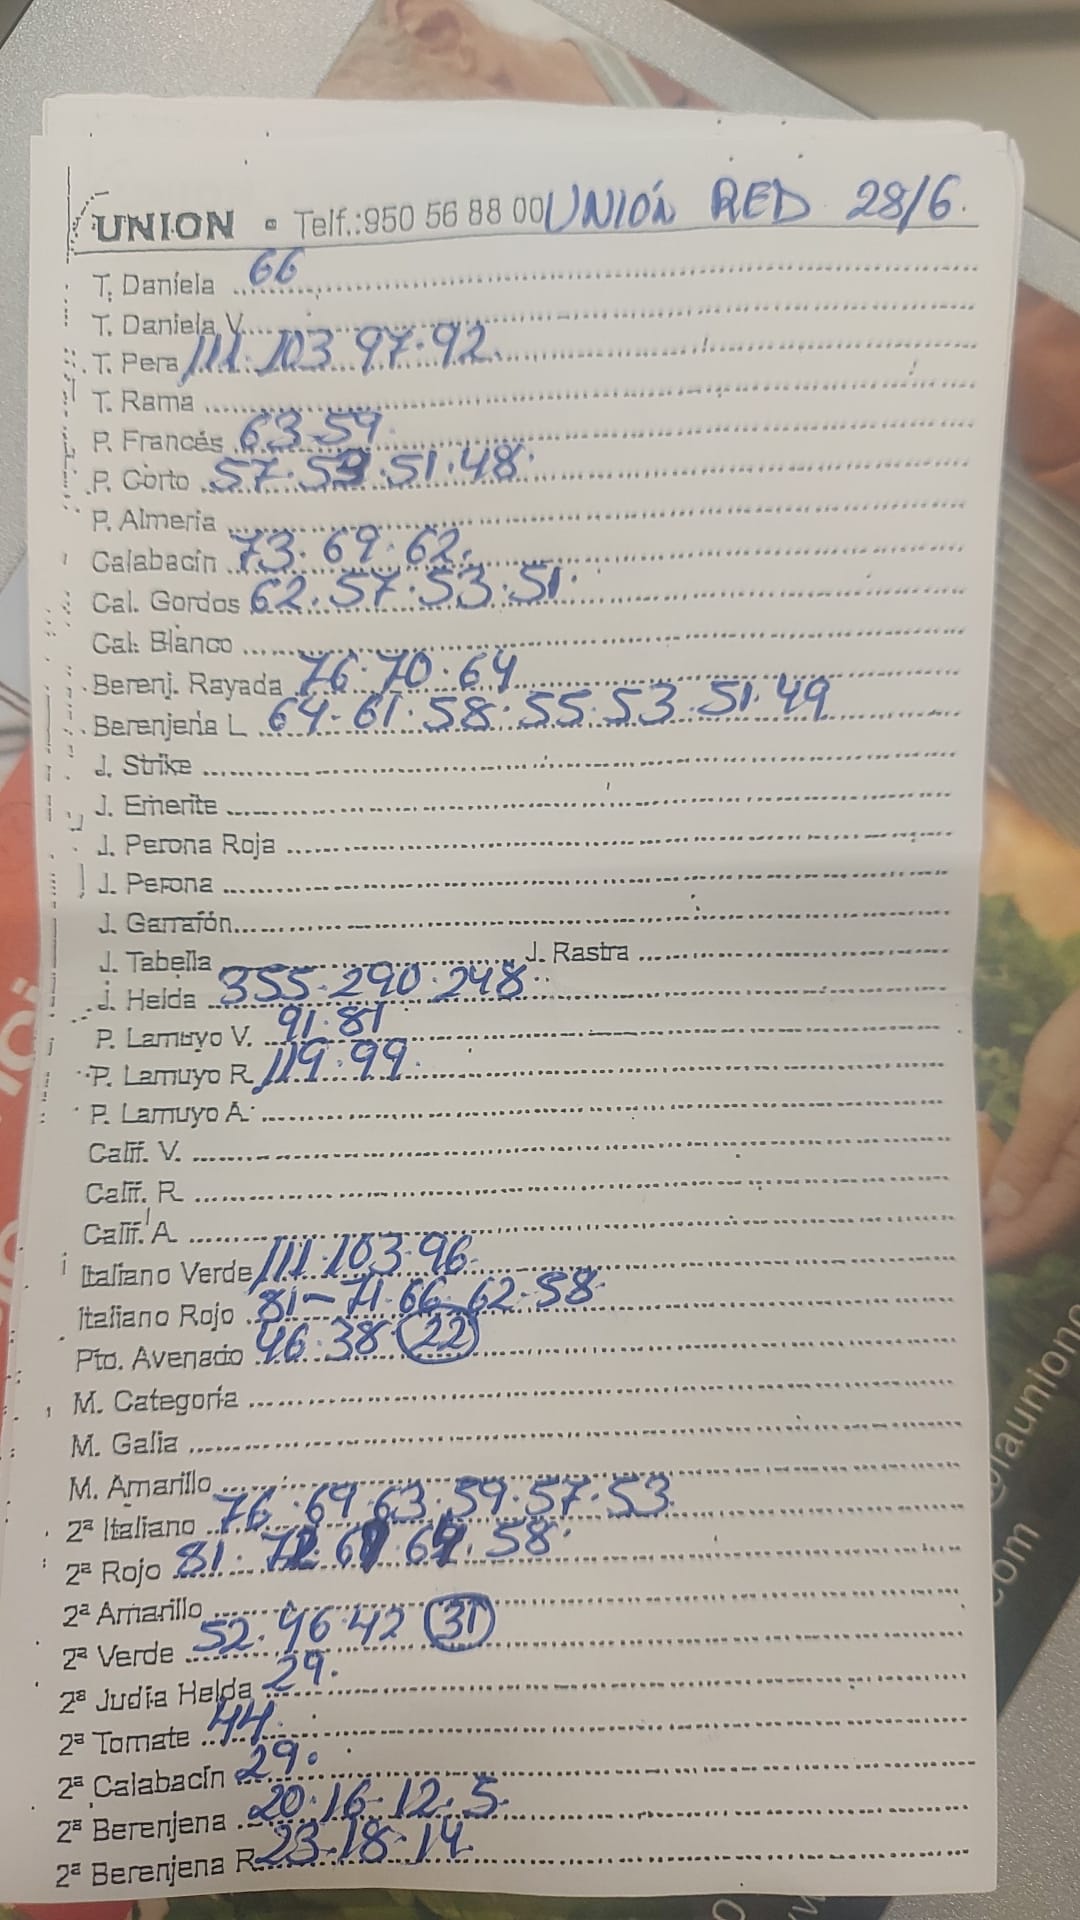 UNION • Telf.:950 56 88 00 UNIÓN RED 28/6.
T. Daniela 66
T. Daniela V.
T. Pera 111. 103 97. 92.
T. Rama
P. Francés 63-59.
P. Corto 57. 53. 51. 48.
P. Almeria
Calabacín 73. 69. 62.
Cal. Gordos 62. 57. 53. 51.
Cal. Blanco
Berenj. Rayada 76. 70. 64
Berenjena L 64- 61. 58. 55. 53. 51. 49
J. Strike
J. Emerite
J. Perona Roja
J. Perona
J. Garrafón
J. Tabella J. Rastra
J. Helda 355. 290. 248.
P. Lamuyo V. 91. 81
P. Lamuyo R. 119. 99.
P. Lamuyo A.
Calif. V.
Calif. R
Calif. A
Italiano Verde 111. 103. 96.
Italiano Rojo 81- 71. 66. 62. 58.
Pto. Avenado 46. 38 22
M. Categoría
M. Galia
M. Amarillo
2ª Italiano 76. 69. 63. 59. 57. 53.
2ª Rojo 81. 58.
2ª Amarillo
2ª Verde 52. 46. 42 31
2ª Judía Helda 29.
2ª Tomate 44.
2ª Calabacín 29.
2ª Berenjena 20. 16- 12. 5.
2ª Berenjena R. 23-18. 14.
@launion
.com